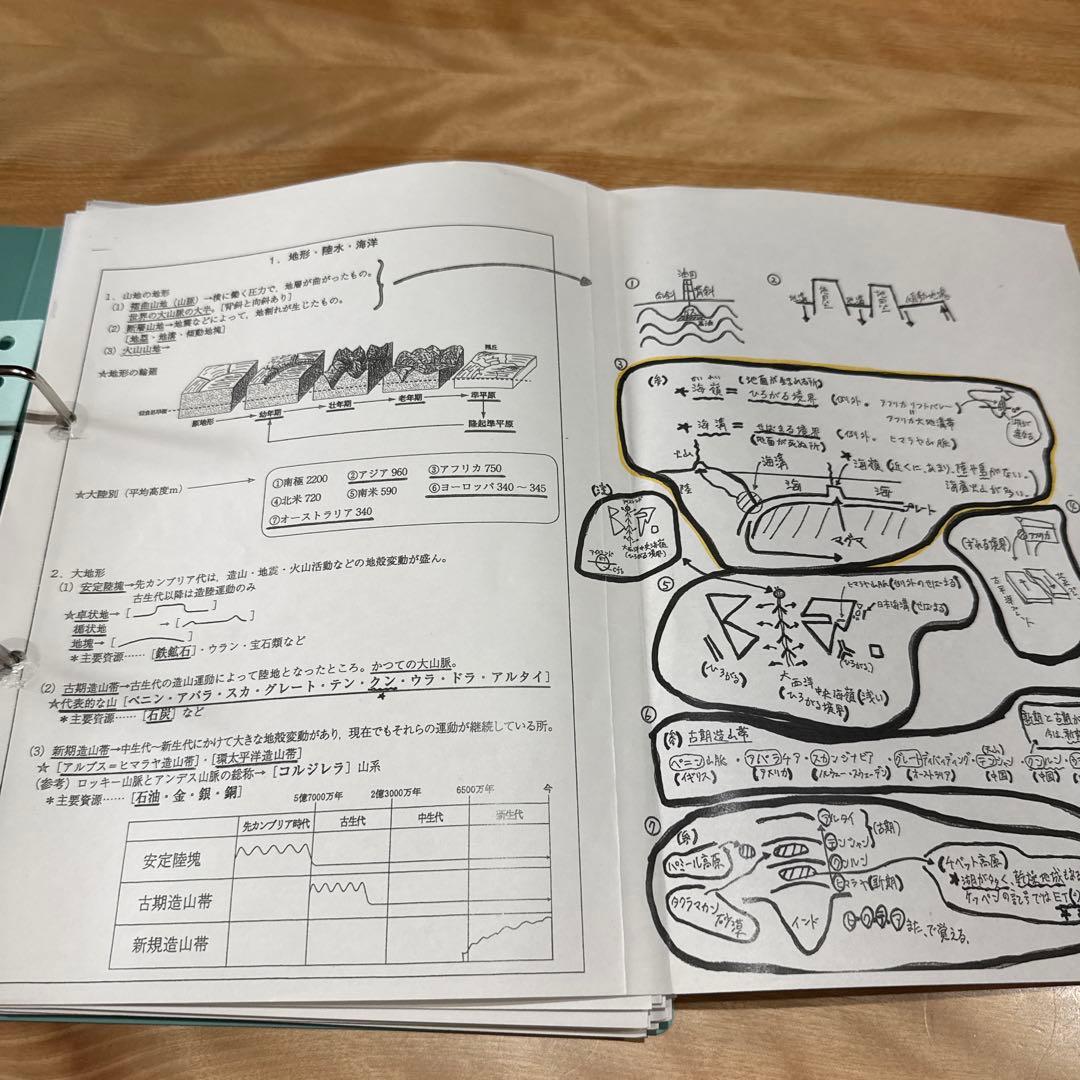 1．地形・陸水・海洋
1．山地の地形
(1) 褶曲山地（山脈）→横に働く圧力で，地層が曲がったもの。
世界の大山脈の大半。[背斜と向斜あり]
(2) 断層山地→地震などによって，地割れが生じたもの。
[地塁・地溝・傾動地塊]
(3) 火山山地→
★地形の輪廻
残丘
原地形 → 幼年期 → 壮年期 → 老年期 → 準平原
隆起準平原
★大陸別（平均高度m）
①南極 2200 ②アジア 960 ③アフリカ 750
④北米 720 ⑤南米 590 ⑥ヨーロッパ 340～345
⑦オーストラリア 340
2．大地形
(1) 安定陸塊→先カンブリア代は，造山・地震・火山活動などの地殻変動が盛ん。
古生代以降は造陸運動のみ
★卓状地→[
楯状地 →[
地塊→[
＊主要資源……[鉄鉱石]・ウラン・宝石類など
(2) 古期造山帯→古生代の造山運動によって陸地となったところ。かつての大山脈。
★代表的な山 [ペニン・アパラ・スカ・グレート・テン・クン・ウラ・ドラ・アルタイ]
＊主要資源……[石炭] など
(3) 新期造山帯→中生代～新生代にかけて大きな地殻変動があり，現在でもそれらの運動が継続している所。
★ [アルプス＝ヒマラヤ造山帯]・[環太平洋造山帯]
(参考) ロッキー山脈とアンデス山脈の総称→ [コルジレラ] 山系
＊主要資源……[石油・金・銀・銅]
5億7000万年 2億3000万年 6500万年 今
先カンブリア時代 古生代 中生代 新生代
安定陸塊
古期造山帯
新規造山帯
①
油田
背斜
②
地溝
地塁
地溝
地塁
傾動地塊
③
★海嶺 = (地面が生まれる所)
ひろがる境界
(例外。アフリカリフトバレー
= アフリカ大地溝帯
★海溝 = せばまる境界
(地面が死ぬ所)
(例外。ヒマラヤ山脈)
火山
海溝
★海嶺
海底火山が多い。
陸
海
海
プレート
マグマ
大西洋中央海嶺
(ひろがる境界)
④
(ずれる境界)
⑤
日本海溝(せばまる)
(ひろがる)
(ひろがる)
大西洋
中央海嶺(浅い)
(ひろがる境界)
⑥
古期造山帯
ペニン山脈・アパラチア・スカンジナビア・グレートディバイディング・テンシャン・クンルン
(イギリス) (アメリカ) (ノルウェー・スウェーデン) (オーストラリア) (中国) (中国)
⑦
パミール高原
タクラマカン砂漠
アルタイ
テンシャン
(古期)
クンルン
ヒマラヤ (新期)
インド
ヒ・ク・テ・ア また、で覚える。
チベット高原
★湖が多く、乾燥地域
ケッペンの記号ではET